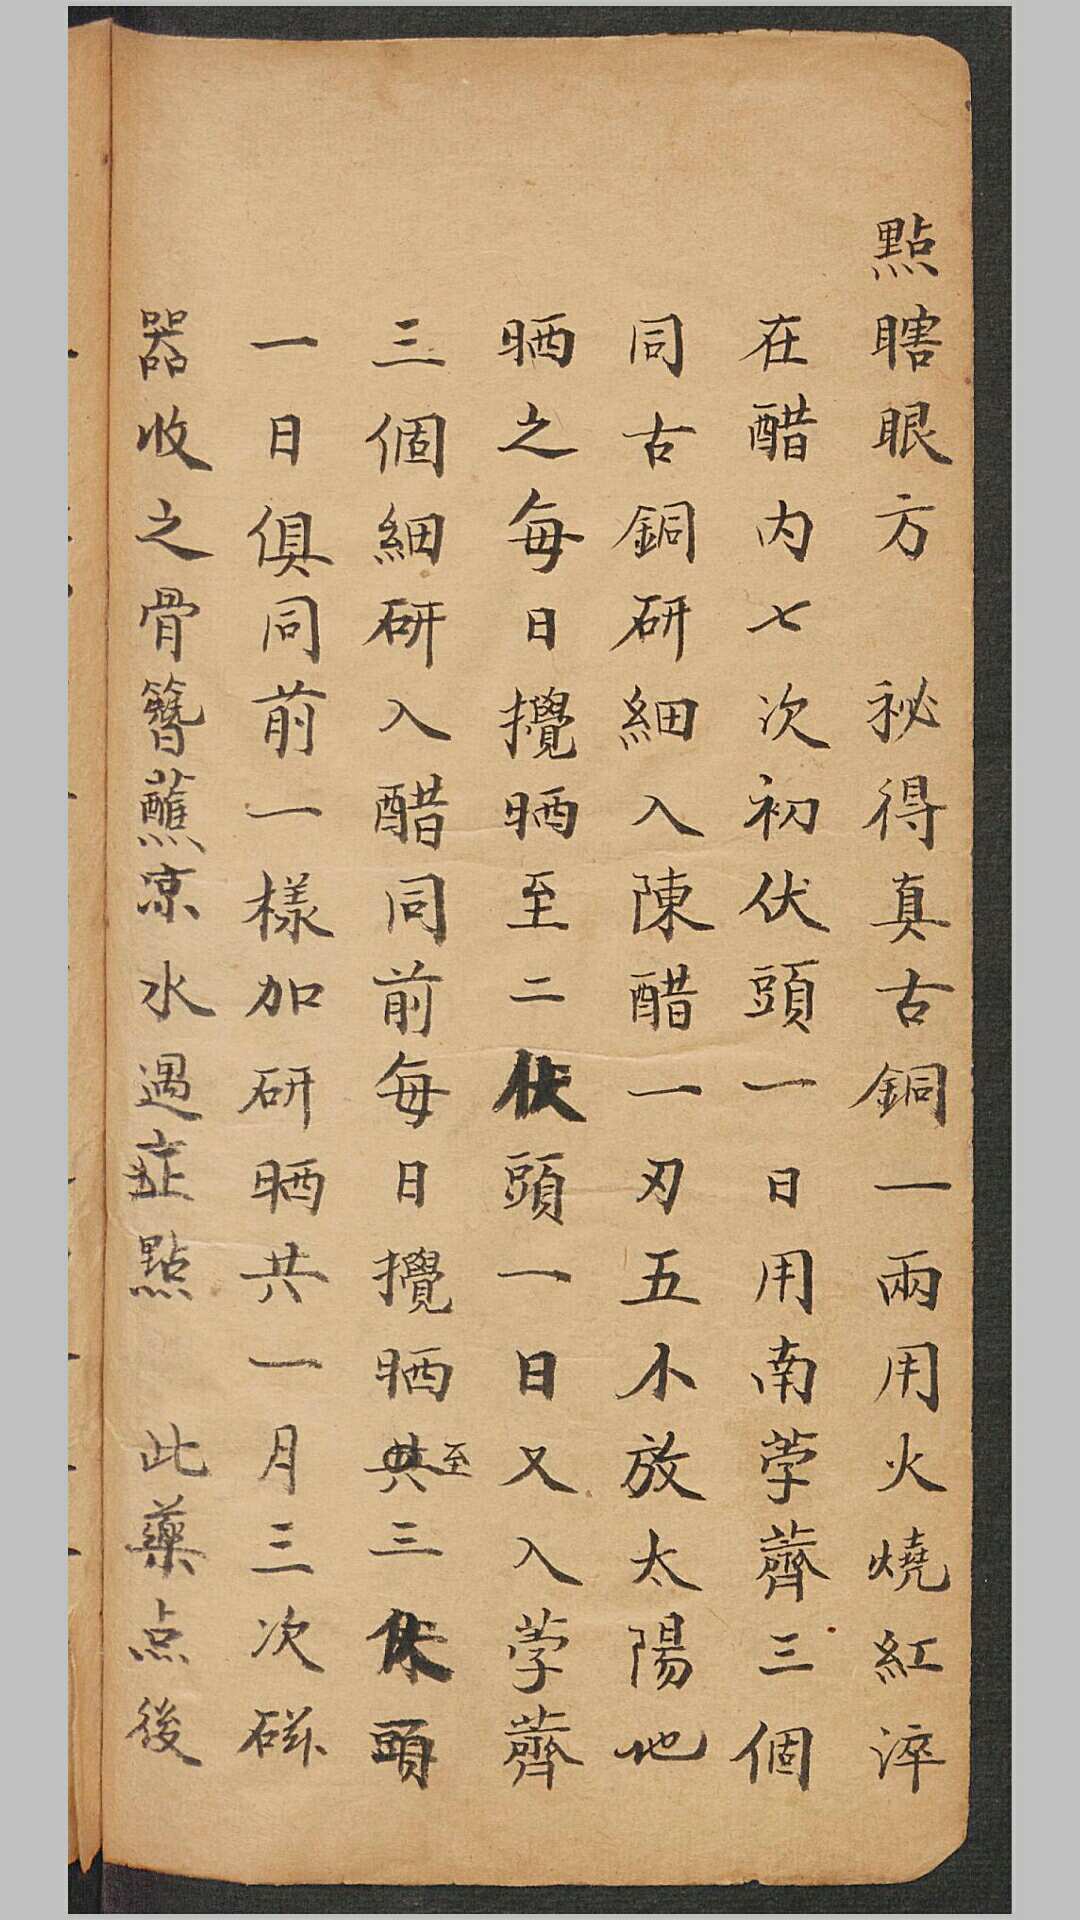 點瞎眼方　秘得真古銅一兩用火燒紅淬
在醋内七次初伏頭一日用南荸薺三個
同古銅研細入陳醋一刃五个放太陽地
晒之每日攪晒至二伏頭一日又入荸薺
三個細研入醋同前每日攪晒至三伏頭
一日俱同前一樣加研晒共一月三次磁
器收之骨簪蘸凉水遇症點　此藥点後